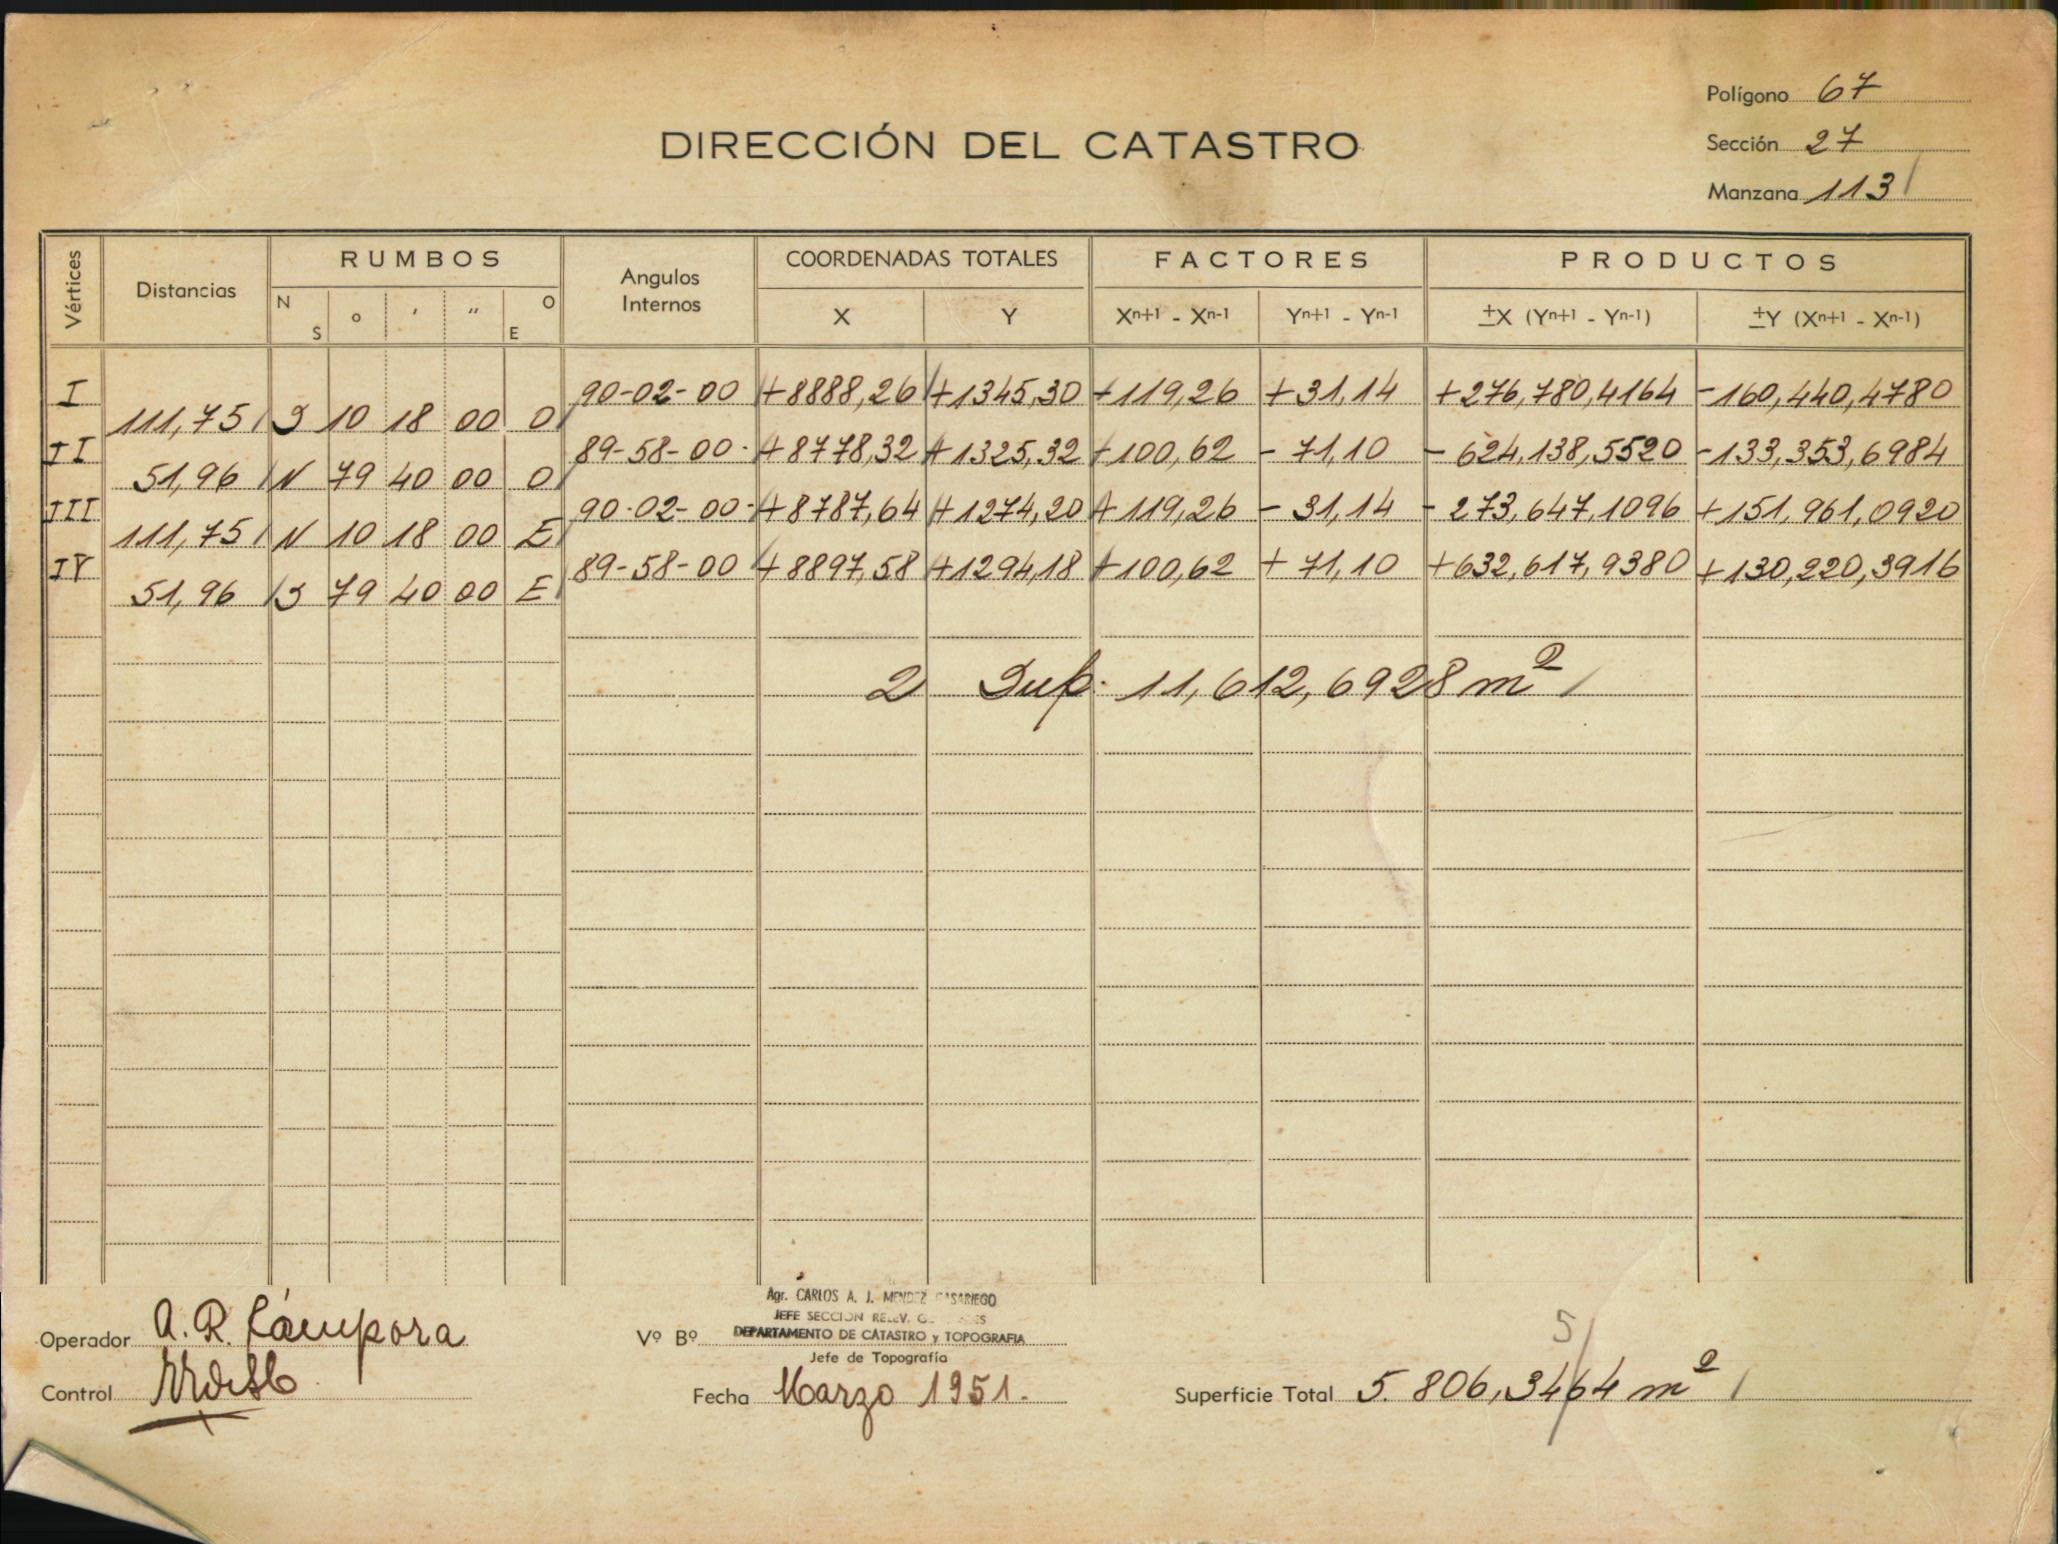 Polígono 67
DIRECCIÓN DEL CATASTRO
Sección 27
Manzana 113
Vértices
Distancias
RUMBOS
N S o ′ ″ O E
Angulos
Internos
COORDENADAS TOTALES
X Y
FACTORES
Xn+1 - Xn-1 Yn+1 - Yn-1
PRODUCTOS
±X (Yn+1 - Yn-1) ±Y (Xn+1 - Xn-1)
I 90-02-00 +8888,26 +1345,30 +119,26 +31,14 +276,780,4164 -160,440,4780
111,75 S 10 18 00 O
II 89-58-00 +8778,32 +1325,32 +100,62 - 71,10 - 624,138,5520 -133,353,6984
51,96 N 79 40 00 O
III 90-02-00 +8787,64 +1274,20 +119,26 - 31,14 - 273,647,1096 +151,961,0920
111,75 N 10 18 00 E
IV 89-58-00 +8897,58 +1294,18 +100,62 + 71,10 +632,617,9380 +130,220,3916
51,96 S 79 40 00 E
2 Sup. 11,612,6928 m²
Agr. CARLOS A. J. MENDEZ CASARIEGO
JEFE SECCION RELEV.
Operador A. R. Cámpora
Vº Bº DEPARTAMENTO DE CATASTRO y TOPOGRAFIA
Jefe de Topografía
5
Control
Fecha Marzo 1951.
Superficie Total 5.806,3464 m²